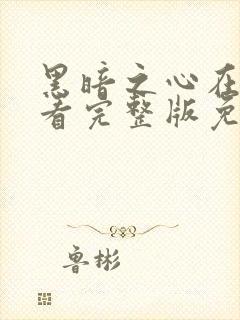 黑暗之心在
看完整版免
鲁彬